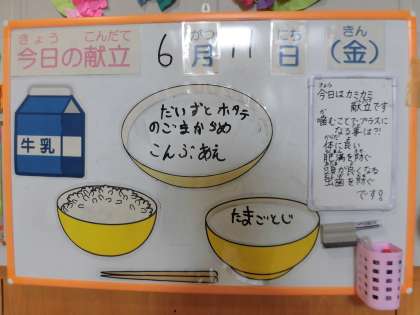 きょう こんだて
今日の献立
6
がつ
月
11
にち
日
きん
(金)
牛乳
だいずとホタテ
のごまがらめ
こんぶあえ
たまごとじ
きょう
今日はカミカミ
こんだて
献立です
か
噛むことでプラスに
なる事は?!
からだ
体に良い
肥満を防ぐ
頭が良くなる
虫歯を防ぐ
です!!